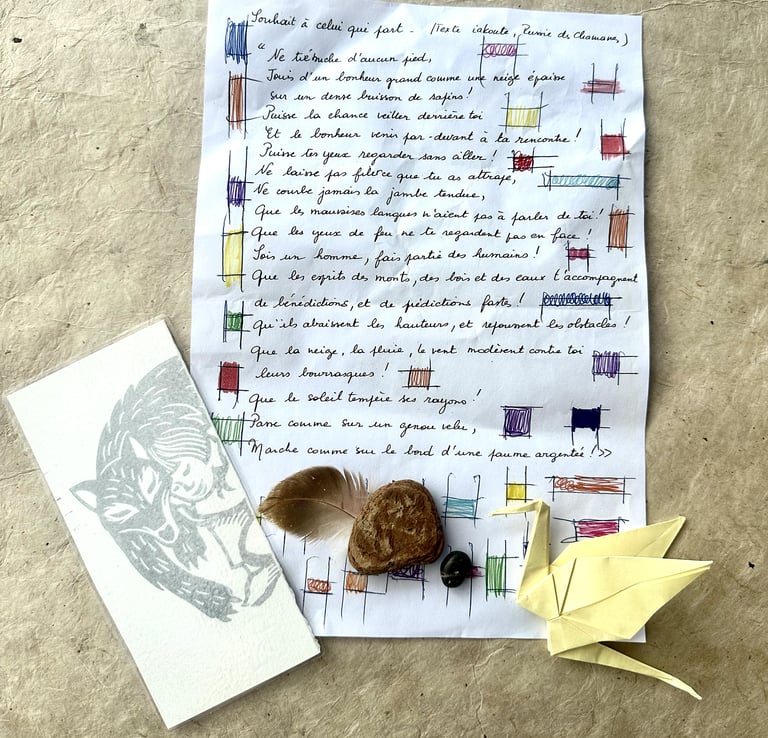 Souhait à celui qui part - (Texte iakoute, Russie des chamanes)
" Ne trébuche d'aucun pied,
Jouis d'un bonheur grand comme une neige épaisse
sur un dense buisson de sapins !
Puisse la chance veiller derrière toi
Et le bonheur venir par-devant à ta rencontre !
Puisse tes yeux regarder sans ciller !
Ne laisse pas filer ce que tu as attrapé,
Ne courbe jamais la jambe tendue,
Que les mauvaises langues n'aient pas à parler de toi !
Que les yeux de feu ne te regardent pas en face !
Sois un homme, fais partie des humains !
Que les esprits des monts, des bois et des eaux t'accompagnent
de bénédictions, et de prédictions fastes !
Qu'ils abaissent les hauteurs, et repoussent les obstacles !
Que la neige, la pluie, le vent modèrent contre toi
leurs bourrasques !
Que le soleil tempère ses rayons !
Passe comme sur un genou velu,
Marche comme sur le bord d'une paume argentée ! »